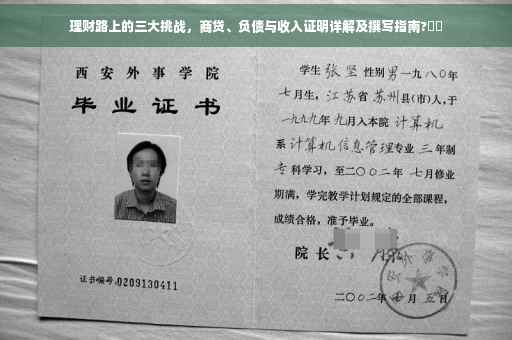 理财路上的三大挑战，商贷、负债与收入证明详解及撰写指南?
西安外事学院
毕业证书
证书编号:0209130411
学生 张坚 性别 男 一九八〇年
七月生，江苏省苏州县(市)人，于
一九九九年九月入本院 计算机
系 计算机信息管理专业 三 年制
专科学习，至二〇〇二年 七月修业
期满，学完教学计划规定的全部课程，
成绩合格，准予毕业。
院长
二〇〇二年 月五日